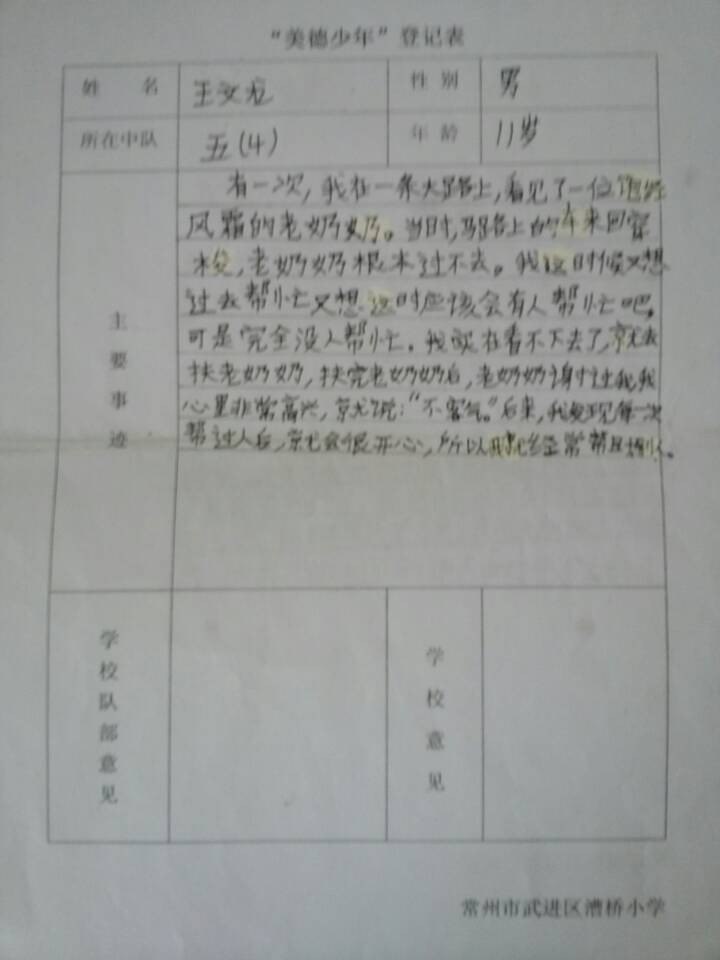 “美德少年”登记表
姓 名 王文龙 性别 男
所在中队 五(4) 年龄 11岁
主要事迹
有一次,我在一条大路上,看见了一位饱经
风霜的老奶奶。当时,马路上的车来回穿
梭,老奶奶根本过不去。我这时候又想
过去帮忙又想这时应该会有人帮忙吧,
可是完全没人帮忙。我实在看不下去了,就去
扶老奶奶,扶完老奶奶后,老奶奶谢过我,我
心里非常高兴,就说:“不客气。”后来,我发现每一次
帮过人后,就会很开心,所以我就经常帮
学校队部意见
学校意见
常州市武进区漕桥小学